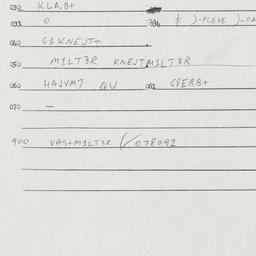 030 KLA.B+
033 0 034 $ )-PLEVE )-DA
040 G1KNEJT+
050 M1LT3R KNEJTM1LT3R
060 HAJVM7 QU 061 GPERB+
070 —
900 VAS+M1LT3R (/078092